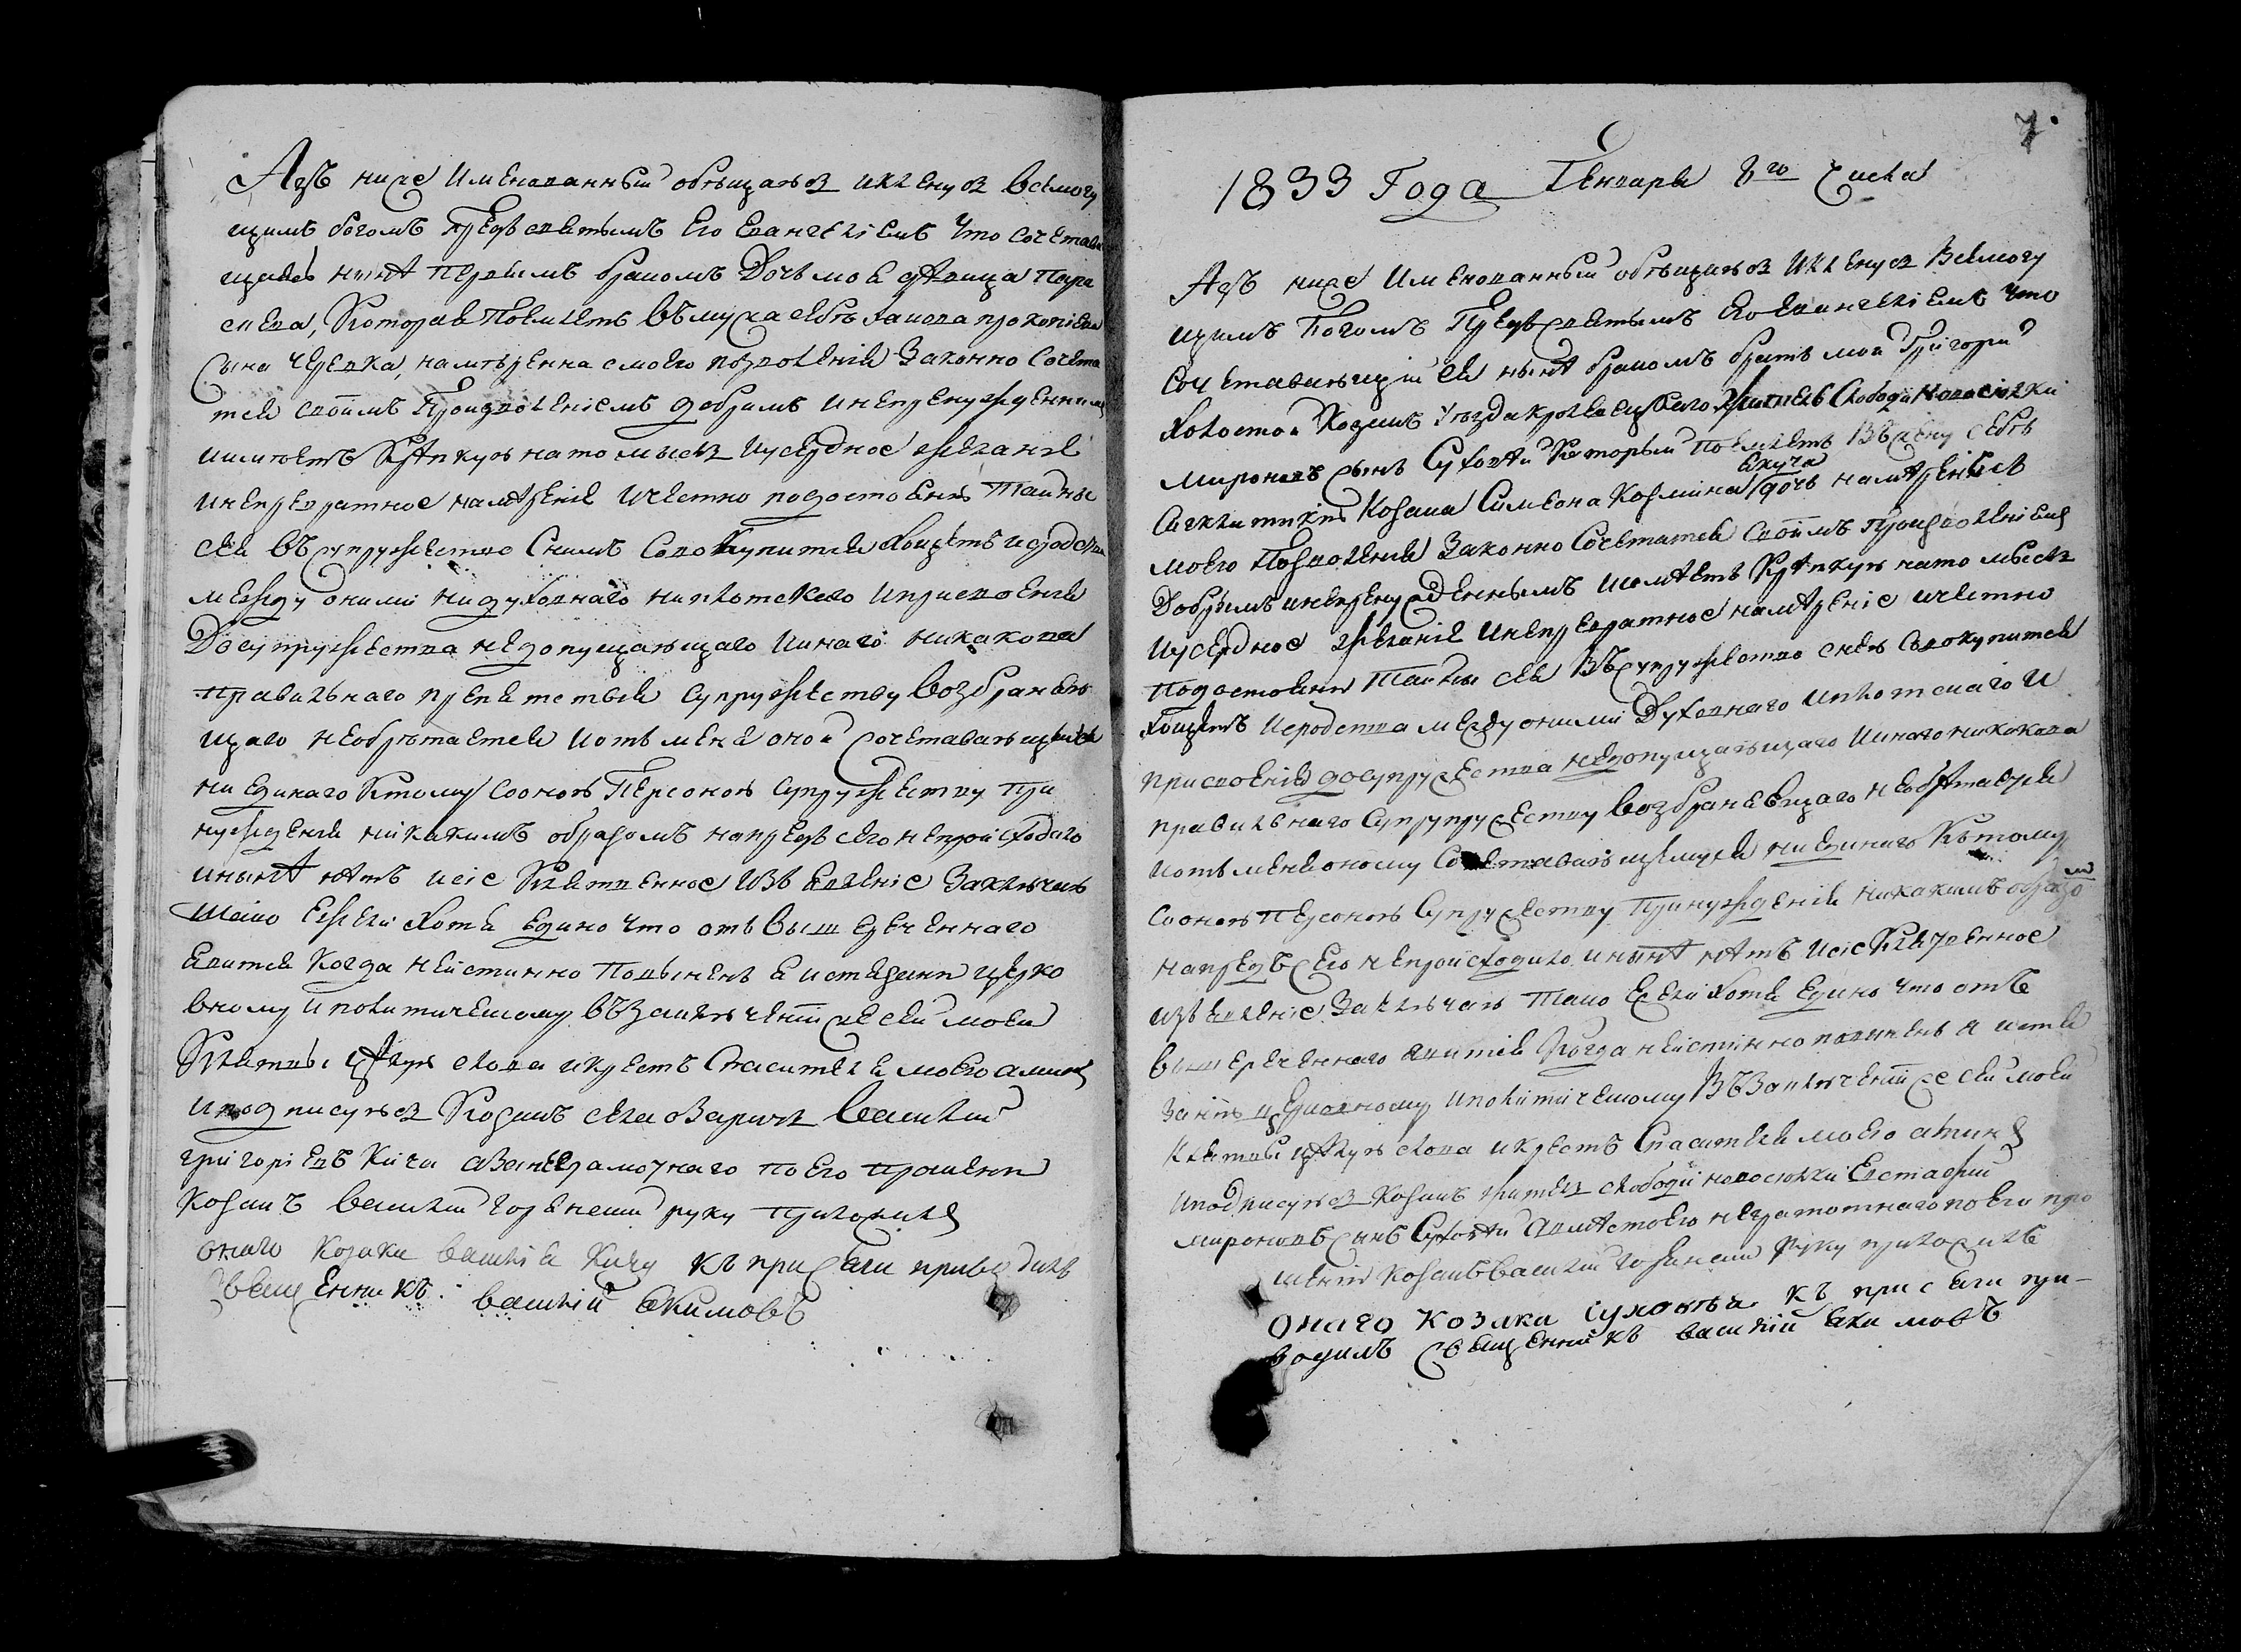 Азъ ниже Именованный обѣщаюся и кленуся всемогу
щимъ богомъ Предъ святымъ Его Евангелiемъ что сочетав
щаясь нынѣ первымъ бракомъ Дочь моя дѣвица Пара
скева, Которая Поемлетъ въ мужа себѣ Якова прокопiева
Сына Черевка, намѣренна с моего позволенiя Законно Сочета
тся своимъ Произволенiемъ добримъ и непренужденним
и имѣетъ Крѣпкую на то мысль и усердное желанiе
и непревратное намѣренiе и честно подостоянiю Тайны
сея въ супружество Снимъ Совокупится хощетъ и родства
между оними ни духовнаго ни плотскаго и присвоенiя
До супружества недопущающаго и инаго никакова
правильнаго препятствiя супружеству возбраняю
щаго необрѣтается и отъ меня оной сочетавающийся
ни единаго Ктому Сооною Персоною Супружеству При
нужденiя никакимъ образомъ напредъ сего непроисходило
и нынѣ нѣтъ и сiе Клятвенное изъявленiе Заключаю
тако Ежели хотя Едино что отъ вышереченнаго
явится когда неистинно Повиненъ я истязанiю церко
вному и политическому въ заключенiи же сей моея
Клятвы цѣлую слова и крестъ Спасителя моего аминь
и подписуюся Козакъ села Озаричъ Василiй
григорiевъ Кича а Занеграмотнаго по Его прошенiю
Козакъ Василiй горянскiй руку приложилъ
онаго козака василiя Кичу къ присяги приводилъ
священникъ василiй Екимовъ
7.
1833 Года Генваря 8го Числа
Азъ ниже Именованный обѣщаюся и кленуся Всемогу
щимъ Богомъ Предъ святымъ Его Евангелiемъ что
Сочетавающiйся нынѣ бракомъ братъ мой Григорiй
холостой Козакъ уѣзда кролевецкаго житель Слободи Новосiолки
Мироновъ сынъ Суховѣй Который Поемлетъ Въ жену себѣ
Козака Симеона Козмина Якуча дочь намѣренъ съ
моего Позволенiя Законно Сочетатся своимъ произволенiемъ
Добрымъ и непренужденнымъ и имѣетъ Крѣпкую на то мысль
и усердное желанiе и непревратное намѣренiе и честно
подостоянiю Тайны сея Въ супружество снею Совокупится
хощетъ и сродства между оними Духовнаго и плотскаго и
присвоенiя до супружества недопущающаго и инаго никакова
правильнаго Супрупружеству возбраняющаго необрѣтается
и отъ меня оному Сочетавающемуся ни единаго Къ тому
Сооною персоною Супружеству Принужденiя никакимъ образо
мъ
напредъ сего непроисходило и нынѣ нѣтъ и сiе Клятвенное
изъявленiе Заключаю Тако Ежели хотя Едино что отъ
вышереченнаго явится Когда неистинно повиненъ я истя
занiю церковному и политическому Въ Заключенiи же сей моей
Клятвы цѣлую слова и крестъ Спасителя моего аминь
и подписуюся Козакъ житель слободи новосюлки Евстафiй
мироновъ сынъ Суховѣй а вмѣсто его неграмотнаго по его про
шенiю Козакъ василiй горянскiй руку приложилъ
онаго козака Суховѣя къ присяги при-
водилъ священникъ василiй Екимовъ